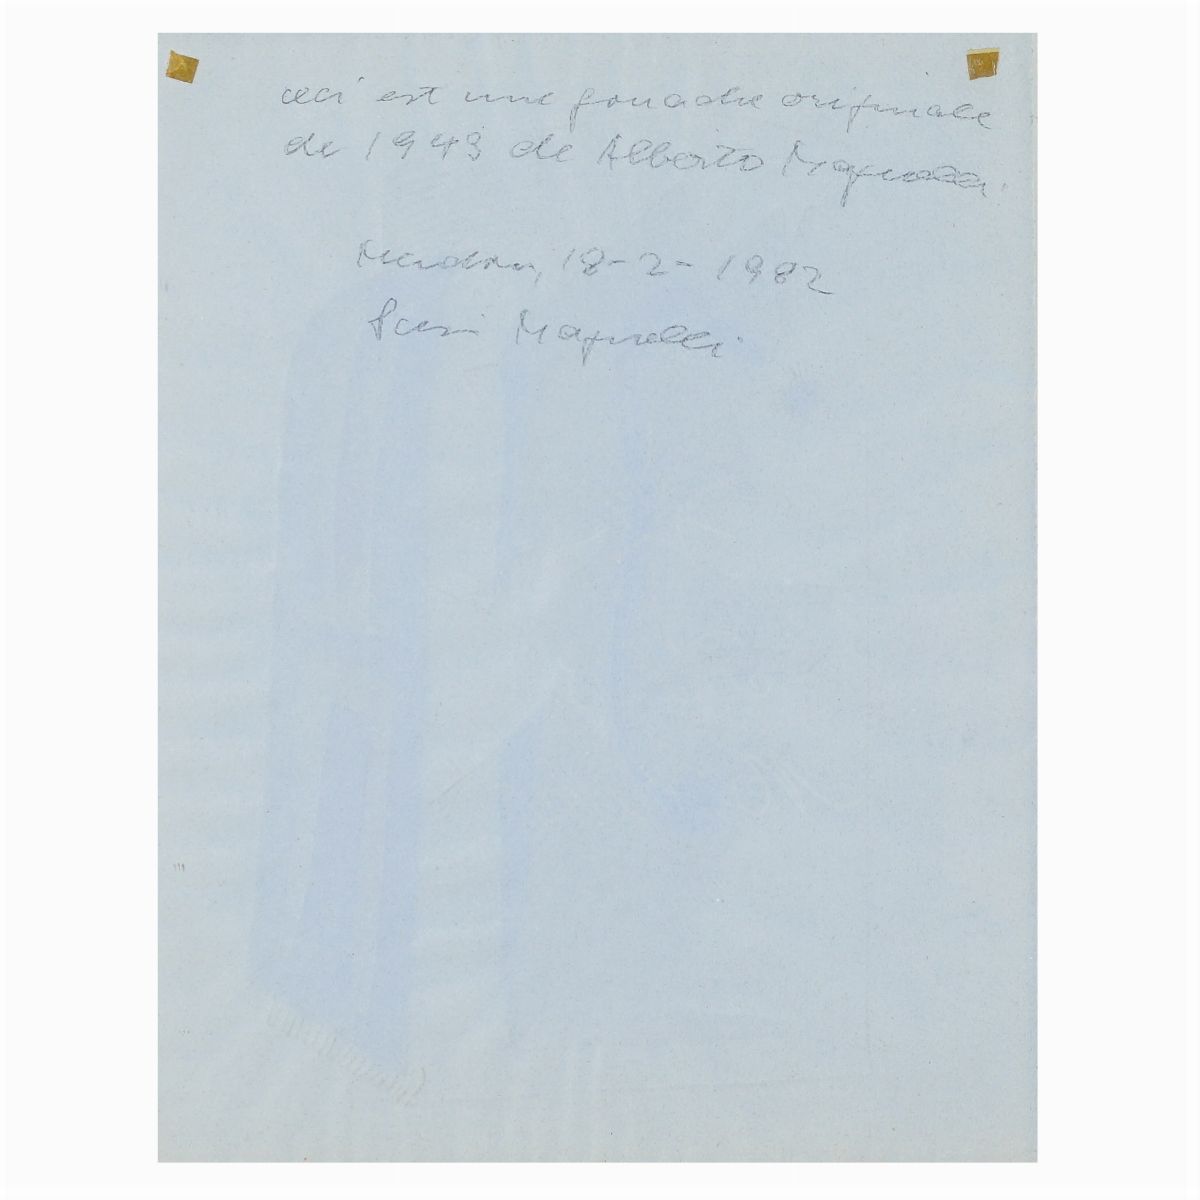 ceci est une gouache originale
de 1943 de Alberto Magnelli.
Meudon, 18-2-1982
Susi Magnelli